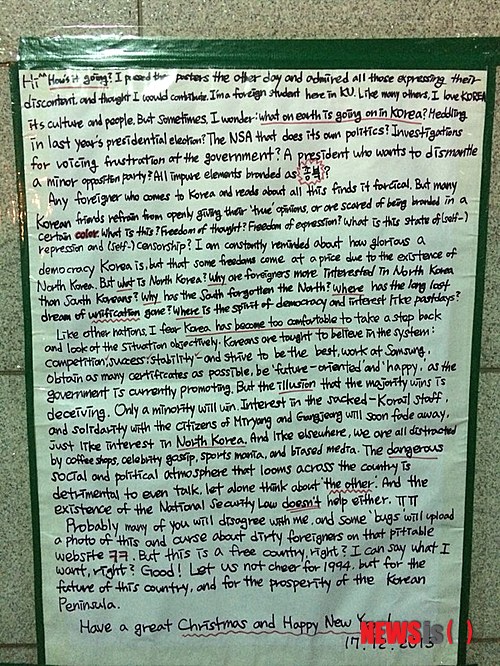 Hi^^ How's it going? I passed the posters the other day and admired all those expressing their
discontent, and thought I would contribute. I'm a foreign student here in KU. Like many others, I love KOREA
its culture and people. But sometimes, I wonder: what on earth is going on in KOREA? Meddling
in last year's presidential election? The NSA that does its own politics? Investigations
for voicing frustration at the government? A president who wants to dismantle
a minor opposition party? All impure elements branded as 종북?
Any foreigner who comes to Korea and reads about all this finds it farcical. But many
Korean friends refrain from openly giving their 'true' opinions, or are scared of being branded in a
certain color. What is this? Freedom of thought? Freedom of expression? What is this state of (self-)
repression and (self-) censorship? I am constantly reminded about how glorious a
democracy Korea is, but that some freedoms come at a price due to the existence of
North Korea. But what is North Korea? Why are foreigners more interested in North Korea
than South Koreans? Why has the South forgotten the North? Where has the long lost
dream of unification gone? Where is the spirit of democracy and interest like pastdays?
Like other nations, I fear Korea has become too comfortable to take a step back
and look at the situation objectively. Koreans are taught to believe in the system:
competition, success, stability - and strive to be the best, work at Samsung,
obtain as many certificates as possible, be 'future-oriented' and 'happy', as the
government is currently promoting. But the illusion that the majority wins is
deceiving. Only a minority will win. Interest in the sacked-Korail staff,
and solidarity with the citizens of Miryang and Gangjeong will soon fade away,
just like interest in North Korea. And like elsewhere, we are all distracted
by coffee shops, celebrity gossip, sports mania, and biased media. The dangerous
social and political atmosphere that looms across the country is
detrimental to even talk, let alone think about 'the other'. And the
existence of the National Security Law doesn't help either. ㅠㅠ
Probably many of you will disagree with me, and some 'bugs' will upload
a photo of this and curse about dirty foreigners on that pitiable
website ㅋㅋ. But this is a free country, right? I can say what I
want, right? Good! Let us not cheer for 1994, but for the
future of this country, and for the prosperity of the Korean
Peninsula.
Have a great Christmas and Happy New Year!
17.12.2013
NEWSis